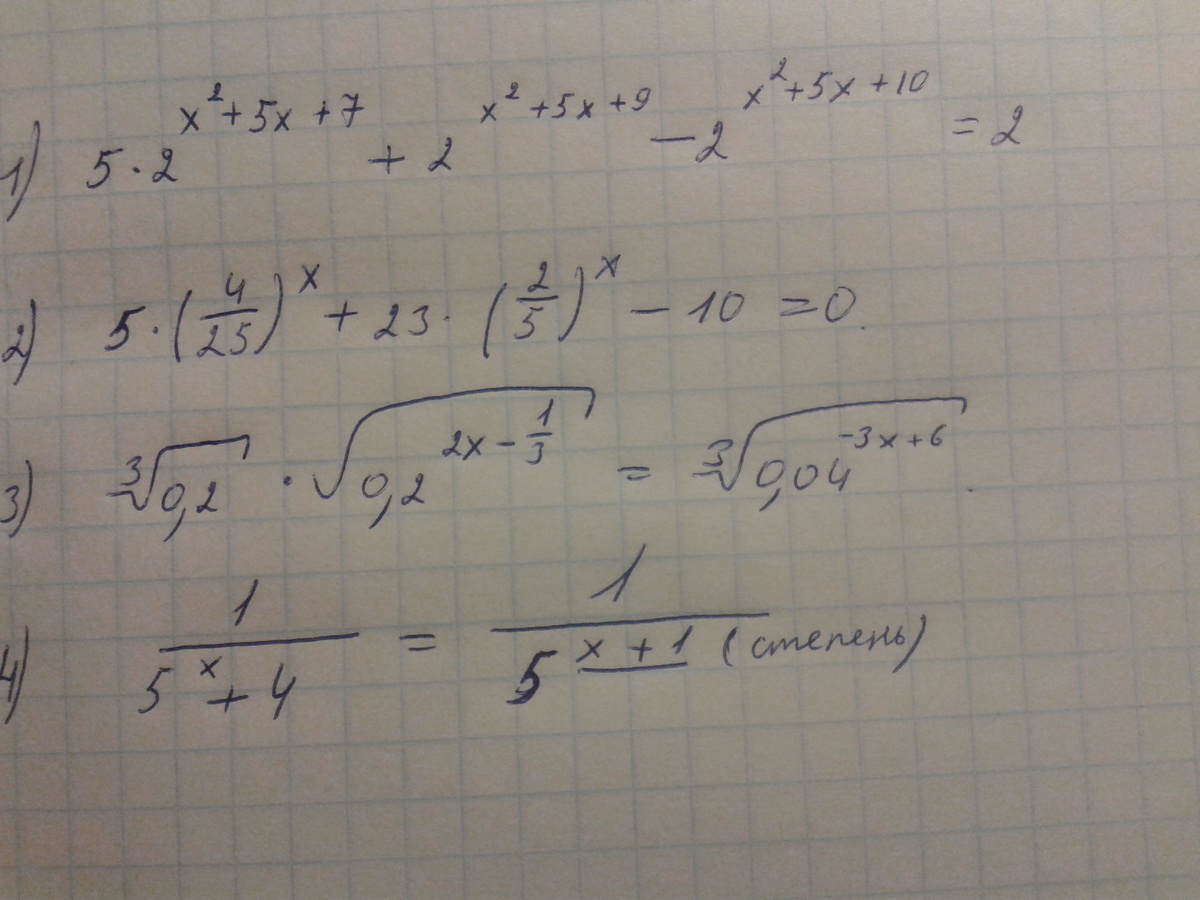 1) 5·2^(x²+5x+7) + 2^(x²+5x+9) − 2^(x²+5x+10) = 2
2) 5·(4/25)^x + 23·(2/5)^x − 10 = 0.
3) ∛0,2 · √(0,2^(2x−1/3)) = ∛(0,04^(−3x+6)).
4) 1/(5^x + 4) = 1/5^(x+1) (степень)